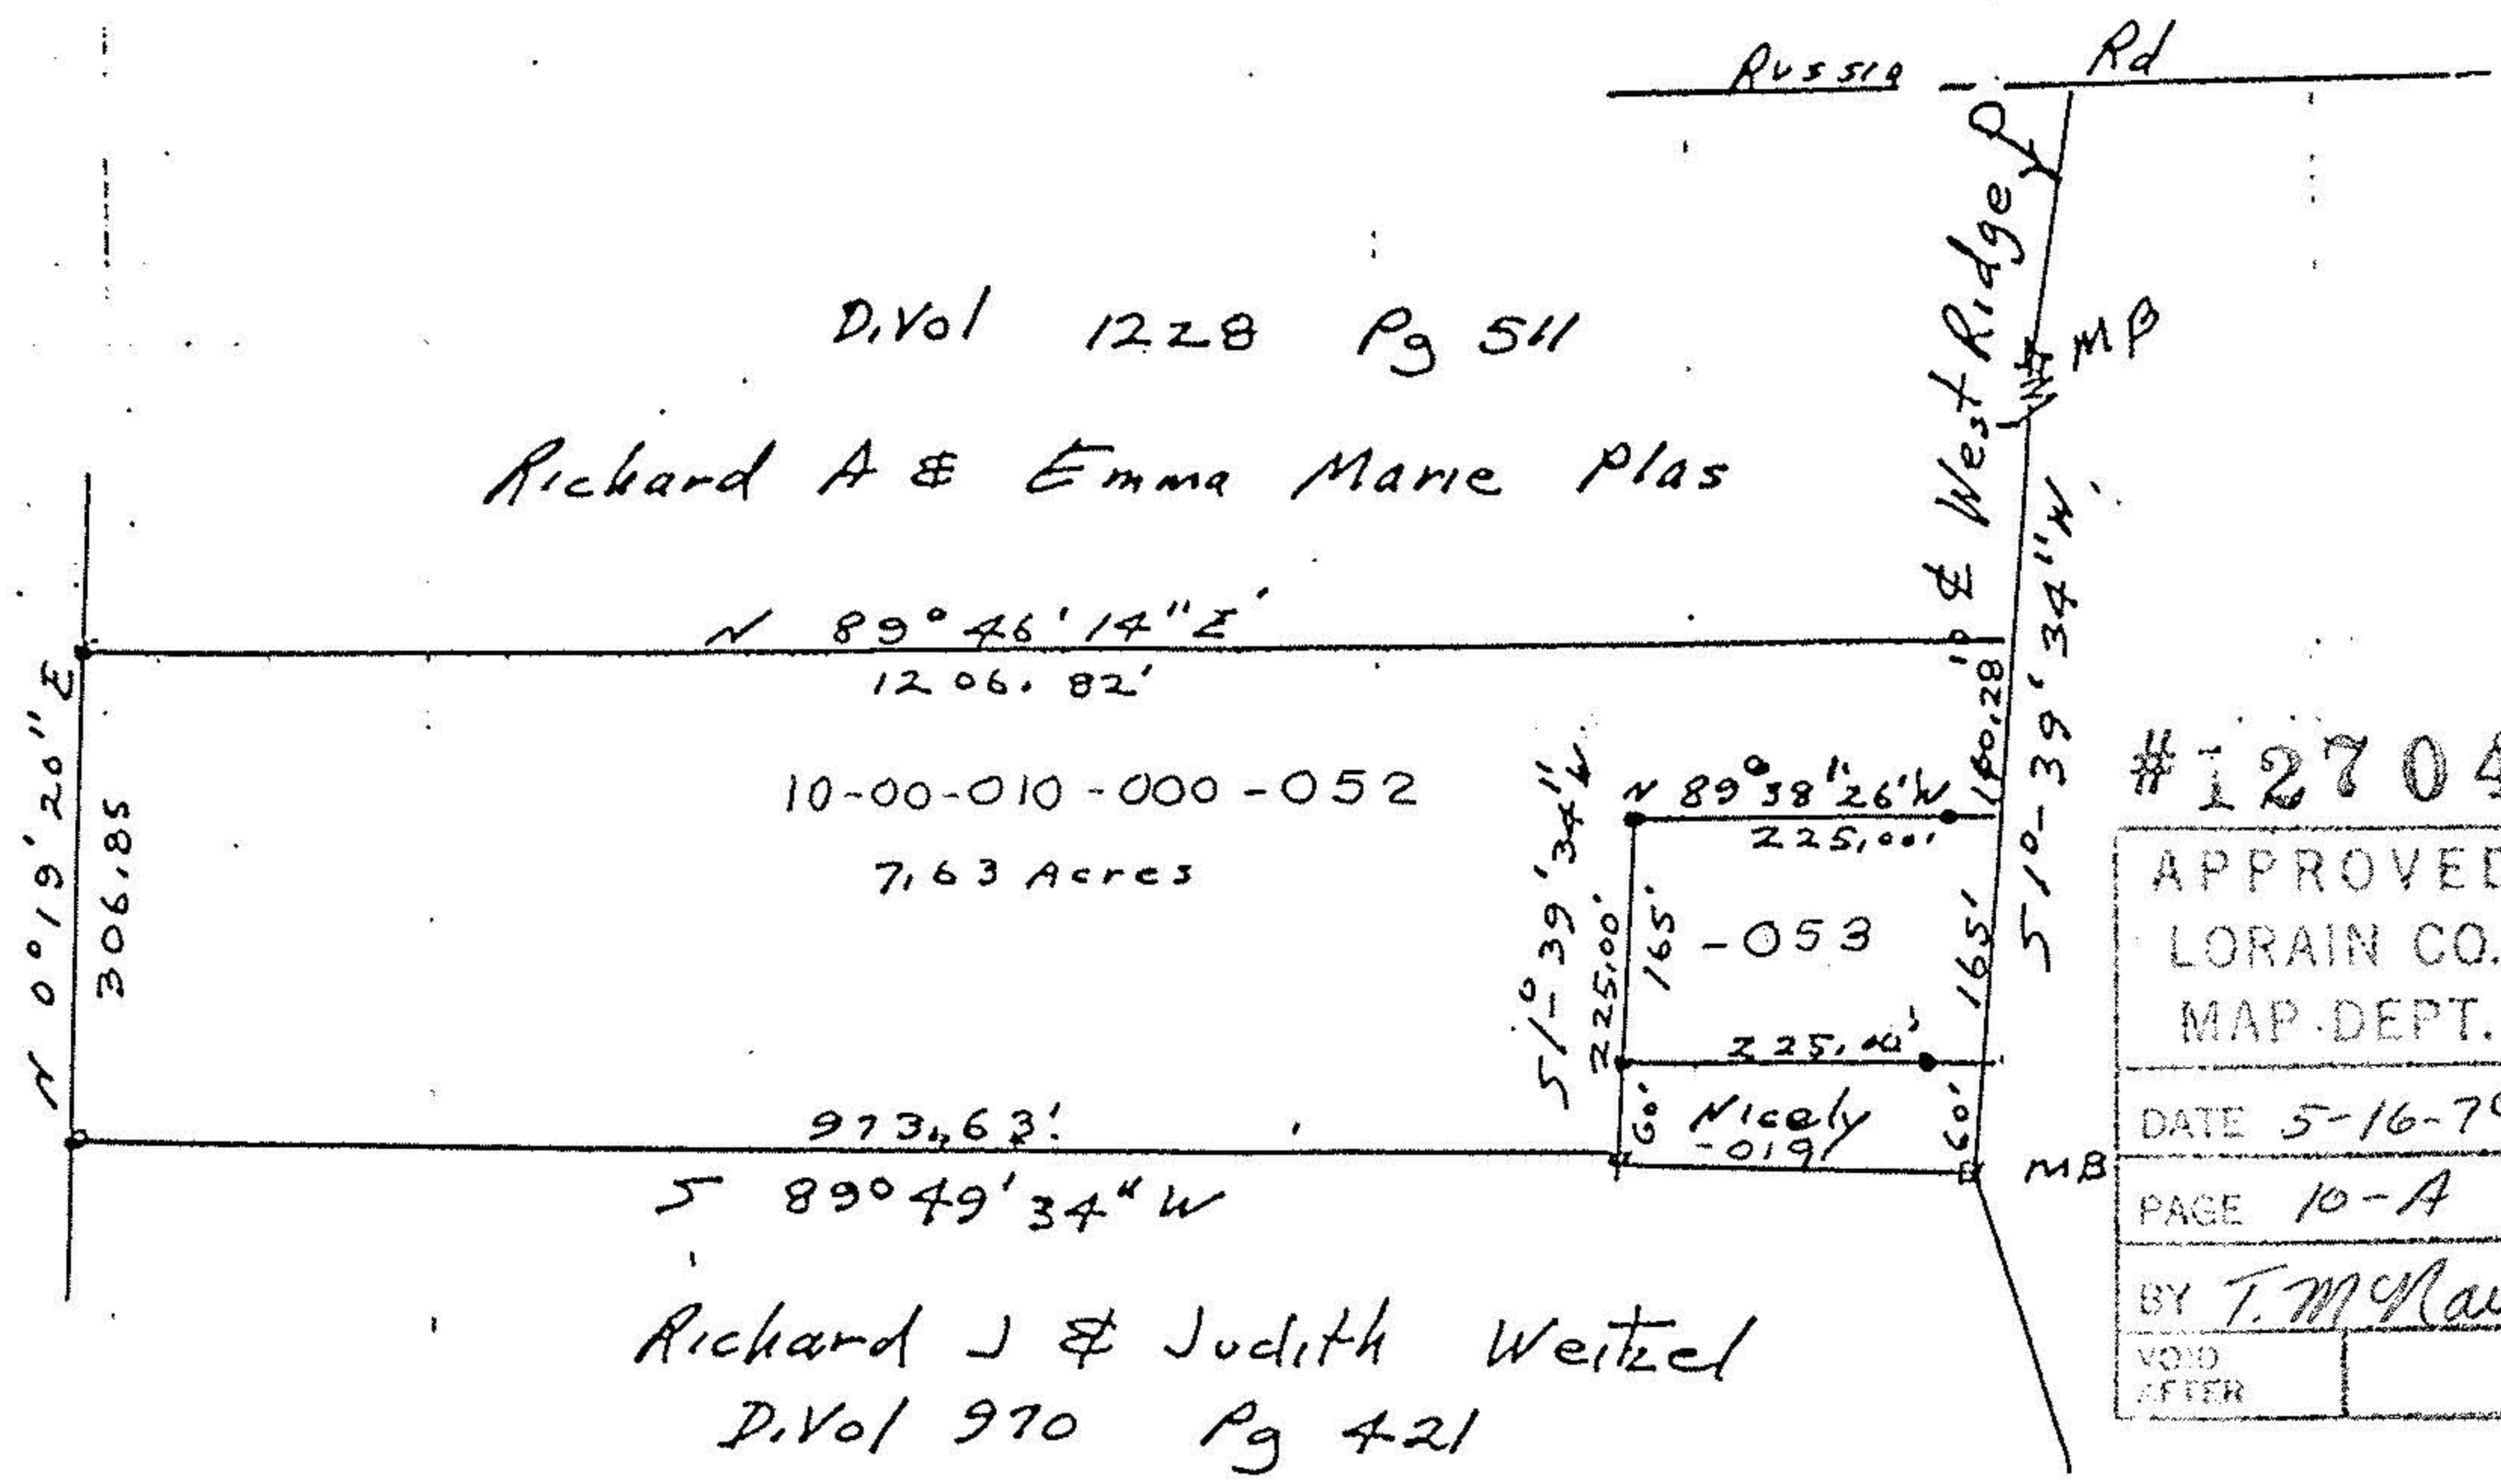 Russia Rd
₵ West Ridge
MB
D.Vol 1228 Pg 511
Richard A & Emma Marie Plas
N 89° 46' 14" E
1206.82'
N 0° 19' 20" E
306.85
10-00-010-000-052
7.63 Acres
S 1°-39' 34" W
S 1°-39' 34" W
225.00'
165'
N 89° 38' 26" W
225.00'
-053
165'
225.00'
60'
Nicely
-019
60'
MB
973.63'
S 89° 49' 34" W
Richard J & Judith Weitzel
D.Vol 970 Pg 421
#12704
APPROVED
LORAIN CO.
MAP DEPT.
DATE 5-16-79
PAGE 10-A
BY T.
VOID
AFTER